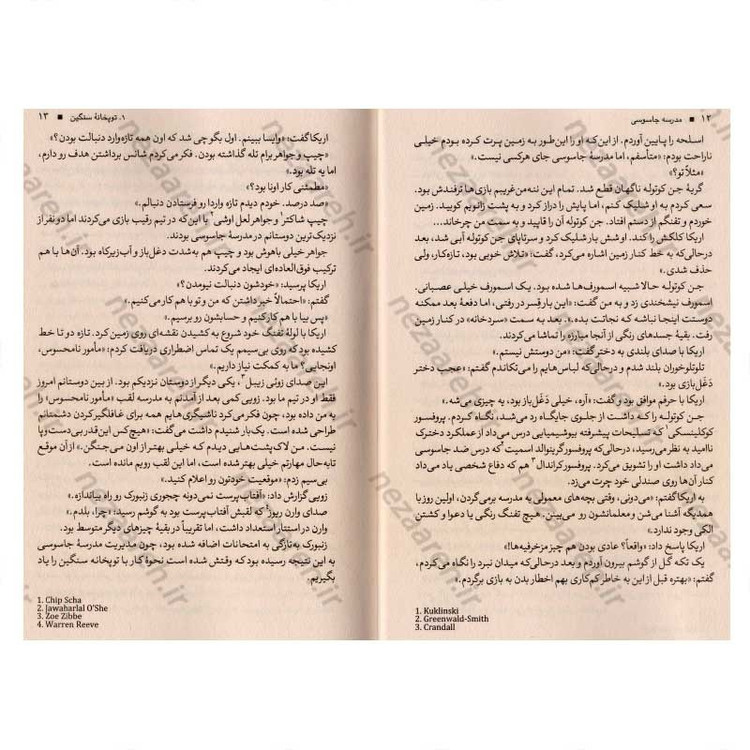 ۱۲ ■ مدرسه جاسوسی
اسلحه را پایین آوردم. از این‌که او را این‌طور به زمین پرت کرده بودم خیلی
ناراحت بودم: «متأسفم، اما مدرسهٔ جاسوسی جای هرکسی نیست.»
«مثلاً تو؟»
گریهٔ جن کوتوله ناگهان قطع شد. تمام این ننه‌من‌غریبم بازی‌ها ترفندش بود.
سعی کردم به او شلیک کنم، اما پایش را دراز کرد و به پشت زانویم کوبید. زمین
خوردم و تفنگم از دستم افتاد. جن کوتوله آن را قاپید و به سمت من چرخاند...
اریکا کلکش را کند. او شش بار شلیک کرد و سرتاپای جن کوتوله آبی شد، بعد
درحالی‌که به خط کنار زمین اشاره می‌کرد، گفت: «تلاش خوبی بود، تازه‌کار، ولی
حذف شدی.»
جن کوتوله حالا شبیه اسمورف‌ها شده بود. یک اسمورف خیلی عصبانی.
اسمورف نیشخندی زد و به من گفت: «این بار قِسِر در رفتی، اما دفعهٔ بعد ممکنه
دوستت اینجا نباشه که نجاتت بده.» بعد به سمت «سردخانه» در کنار زمین
رفت. بقیهٔ جسدهای رنگی از آنجا مبارزه را تماشا می‌کردند.
اریکا با صدای بلندی به دختر گفت: «من دوستش نیستم.»
تلوتلوخوران بلند شدم و درحالی‌که لباس‌هایم را می‌تکاندم گفتم: «عجب دختر
دَغَل‌بازی بود.»
اریکا با حرفم موافق بود و گفت: «آره، خیلی دَغَل‌باز بود، یه چیزی می‌شه.»
جن کوتوله را که داشت از جلوی جایگاه رد می‌شد، نگاه کردم. پروفسور
کوکلینسکی۱ که تسلیحات پیشرفته بیوشیمیایی درس می‌داد از عملکرد دخترک
ناامید به نظر می‌رسید، درحالی‌که پروفسور گرینوالد اسمیت۲ که درس ضد جاسوسی
می‌داد داشت او را تشویق می‌کرد. پروفسور کراندال۳ هم که دفاع شخصی یاد می‌داد
کنار آن‌ها روی صندلی خود چرت می‌زد.
به اریکا گفتم: «می‌دونی، وقتی بچه‌های معمولی به مدرسه برمی‌گردن، اولین روز با
همدیگه آشنا می‌شن و معلمانشون رو می‌بینن. هیچ تفنگ رنگی یا دعوا و کشتن
الکی وجود نداره.»
اریکا پاسخ داد: «واقعاً؟ عادی بودن هم چیز مزخرفیه‌ها!»
یک تکه گل از گوشم بیرون آوردم و بعد درحالی‌که میدان نبرد را نگاه می‌کردم،
گفتم: «بهتره قبل از این به خاطر کم‌کاری بهم اخطار بدن به بازی برگردم.»
1. Kuklinski
2. Greenwald-Smith
3. Crandall
۱. توپخانهٔ سنگین ■ ۱۳
اریکا گفت: «وایسا ببینم. اول بگو چی شد که اون همه تازه‌وارد دنبالت بودن؟»
«چیپ و جواهر برام تله گذاشته بودن. فکر می‌کردم شانس برداشتن هدف رو دارم،
اما یه تله بود.»
«مطمئنی کار اونا بود؟»
«صد درصد. خودم دیدم تازه واردا رو فرستادن دنبالم.»
چیپ شاکتر۱ و جواهر لعل اوشی۲ با این‌که در تیم رقیب بازی می‌کردند اما دو نفر از
نزدیک‌ترین دوستانم در مدرسهٔ جاسوسی بودند.
جواهر خیلی باهوش بود و چیپ هم به‌شدت دغل‌باز و آب‌زیرکاه بود. آن‌ها با هم
ترکیب فوق‌العاده‌ای ایجاد می‌کردند.
اریکا پرسید: «خودشون دنبالت نیومدن؟»
گفتم: «احتمالاً خبر داشتن که من و تو با هم کار می‌کنیم.»
«پس بیا با هم کار کنیم و حسابشون رو برسیم.»
اریکا با لولهٔ تفنگ خود شروع به کشیدن نقشه‌ای روی زمین کرد. تازه دو تا خط
کشیده بود که روی بی‌سیمم یک تماس اضطراری دریافت کردم: «مأمور نامحسوس،
اونجایی؟ ما به کمکت نیاز داریم.»
این صدای زوئی زیبل۳، یکی دیگر از دوستان نزدیکم بود. از بین دوستانم امروز
فقط او در تیم ما بود. زویی کمی بعد از آمدنم به مدرسه لقب «مأمور نامحسوس» را
به من داده بود، چون فکر می‌کرد ناشیگری‌هایم همه برای غافلگیر کردن دشمنانم
طراحی شده است. یک‌بار شنیدم داشت می‌گفت: «هیچ‌کس این‌قدر بی‌دست‌وپا
نیست. من لاک‌پشت‌هایی دیدم که خیلی بهتر از اون می‌جنگن.» از آن موقع
تابه‌حال مهارتم خیلی بهتر شده است، اما این لقب رویم مانده است.
بی‌سیم زدم: «موقعیت خودتون رو اعلام کنید.»
زویی گزارش داد: «آفتاب‌پرست نمی‌دونه چجوری زنبورک رو راه بیاندازه.»
صدای وارن ریوز۴ که لقبش آفتاب‌پرست بود به گوشم رسید: «چرا، بلدم.»
وارن در استتار استعداد داشت، اما تقریباً در بقیهٔ چیزهای دیگر متوسط بود.
زنبورک به‌تازگی به امتحانات اضافه شده بود، چون مدیریت مدرسهٔ جاسوسی
به این نتیجه رسیده بود که وقتش شده است نحوهٔ کار با توپخانه سنگین را یاد
بگیریم.
1. Chip Scha
2. Jawaharlal O'She
3. Zoe Zibbe
4. Warren Reeve
nezaareh.ir